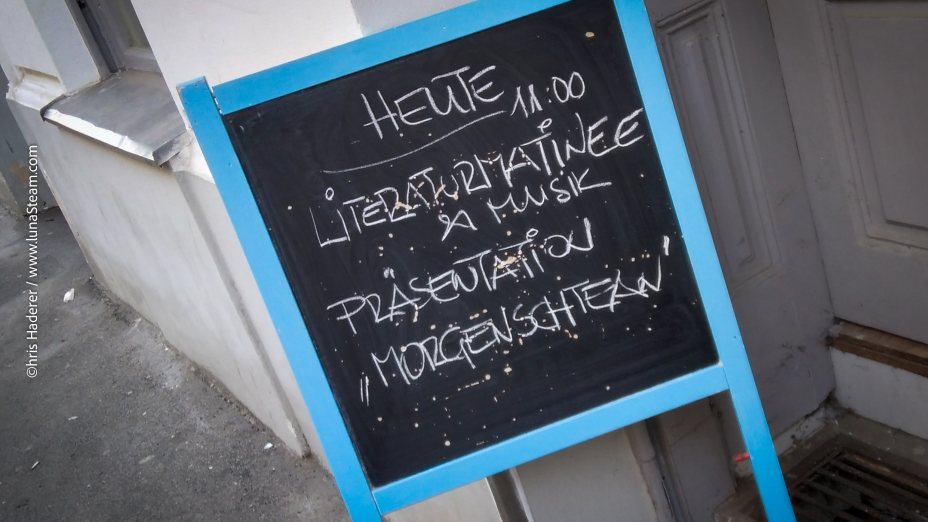 HEUTE 11:00
LITERATURMATINEE
& MUSIK
PRÄSENTATION
„MORGENSCHTEAN"
©hris Haderer / www.lunaSteam.com